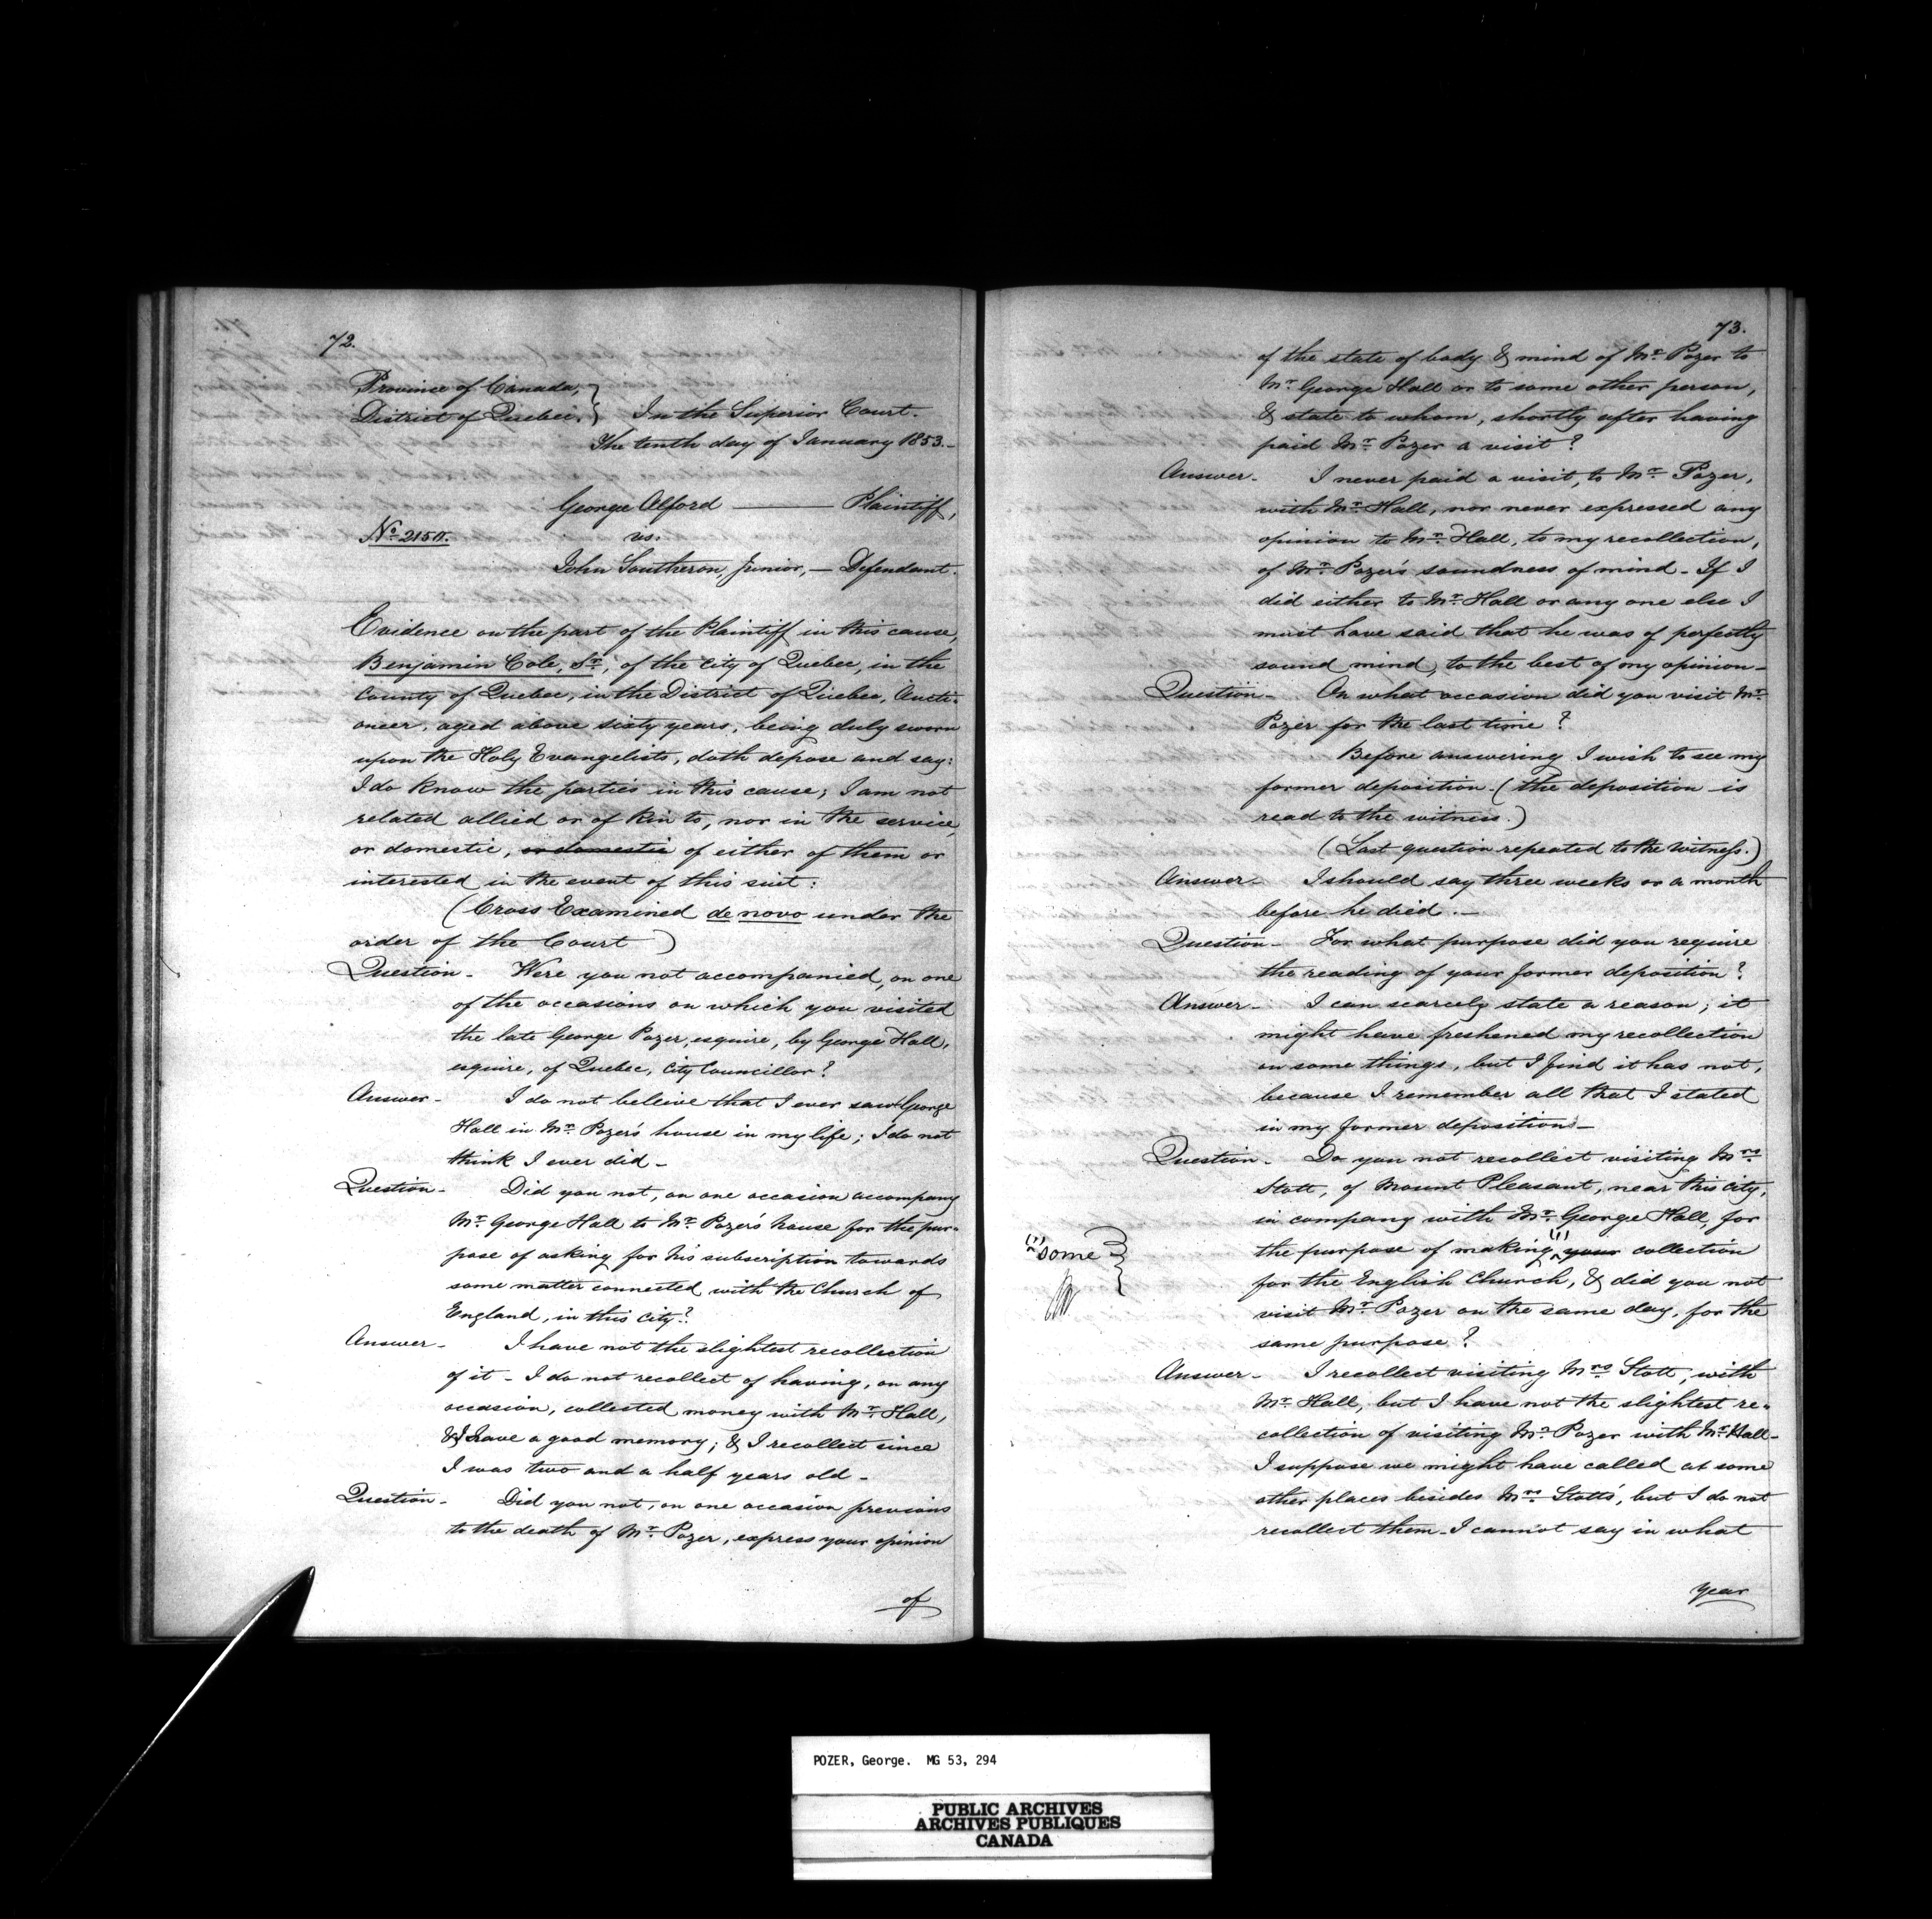 72.
Province of Canada,
District of Quebec. } In the Superior Court.
The tenth day of January 1853.-
George Alford —— Plaintiff,
No. 2150.
vs.
John Southeron, Junior, — Defendant.
Evidence on the part of the Plaintiff in this cause,
Benjamin Cole, Sr., of the City of Quebec, in the
County of Quebec, in the District of Quebec, Aucti-
oneer, aged above sixty years, being duly sworn
upon the Holy Evangelists, doth depose and say:
I do know the parties in this cause; I am not
related allied or of kin to, nor in the service,
or domestic, or domestic of either of them or
interested in the event of this suit:
(Cross Examined de novo under the
order of the Court)
Question - Were you not accompanied, on one
of the occasions on which you visited
the late George Pozer, esquire, by George Hall,
esquire, of Quebec, City Councillor?
Answer - I do not beleive that I ever saw George
Hall in Mr. Pozer's house in my life; I do not
think I ever did -
Question - Did you not, on one occasion accompany
Mr. George Hall to Mr. Pozer's house for the pur-
pose of asking for his subscription towards
some matter connected with the Church of
England, in this City?
Answer - I have not the slightest recollection
of it - I do not recollect of having, on any
occasion, collected money with Mr. Hall,
& I have a good memory; & I recollect since
I was two and a half years old -
Question - Did you not, on one occasion previous
to the death of Mr. Pozer, express your opinion
of
73.
of the state of body & mind of Mr. Pozer to
Mr. George Hall or to some other person,
& state to whom, shortly after having
paid Mr. Pozer a visit?
Answer - I never paid a visit, to Mr. Pozer,
with Mr. Hall, nor never expressed any
opinion to Mr. Hall, to my recollection,
of Mr. Pozer's soundness of mind - If I
did either to Mr. Hall or any one else I
must have said that he was of perfectly
sound mind, to the best of my opinion -
Question - On what occasion did you visit Mr.
Pozer for the last time?
Before answering I wish to see my
former deposition - (the deposition is
read to the witness.)
(Last question repeated to the Witness.)
Answer - I should say three weeks or a month
before he died. -
Question - For what purpose did you require
the reading of your former deposition?
Answer - I can scarcely state a reason; it
might have freshened my recollection
on some things, but I find it has not,
because I remember all that I stated
in my former deposition -
Question - Do you not recollect visiting Mrs.
Stott, of Mount Pleasant, near this City,
in company with Mr. George Hall, for
(1) some } the purpose of making (1) your collection
for the English Church, & did you not
visit Mr. Pozer on the same day, for the
same purpose?
Answer - I recollect visiting Mrs. Stott, with
Mr. Hall, but I have not the slightest re-
collection of visiting Mr. Pozer with Mr. Hall -
I suppose we might have called at some
other places besides Mrs. Stotts', but I do not
recollect them - I cannot say in what
year
POZER, George. MG 53, 294
PUBLIC ARCHIVES
ARCHIVES PUBLIQUES
CANADA